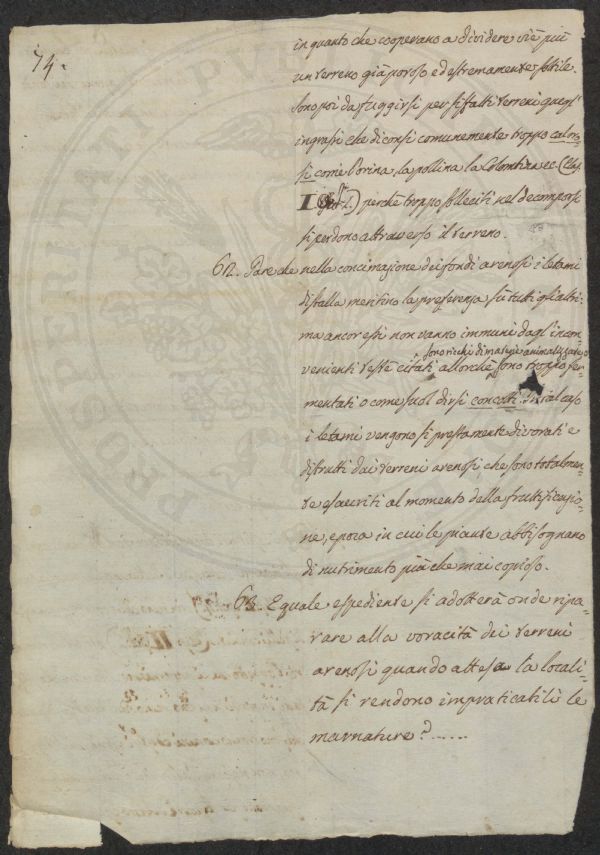 74.
in quanto che cooperano a dividere viè più
un terreno già poroso ed estremamente sottile.
Sono poi da fuggirsi per siffatti terreni quegl'
ingrassi che diconsi comunemente troppo calo-
si come l'orina, la pollina la Colombina ec. (Clas.
I) perchè troppo solleciti nel decomporsi
si perdono attraverso il terreno.
62. Pare che nella concimazione dei fondi arenosi i letami
di stalla meritino la preferenza sù tutti gli altri:
ma ancor essi non vanno immuni dagl'incon-
sono ricchi di materie animalizzate, o
venienti testè citati allorchè sono troppo fer-
mentati o come suol dirsi concotti. In tal caso
i letami vengono sì prestamente divorati e
distrutti dai terreni arenosi, che sono totalmen-
te esauriti al momento della fruttificazio-
ne, epoca in cui le piante abbisognano
di nutrimento più che mai copioso.
63. E quale espediente si adotterà onde ripa-
rare alla voracità dei terreni
arenosi quando attesa la locali-
tà si rendono impraticabili le
marnature? .....